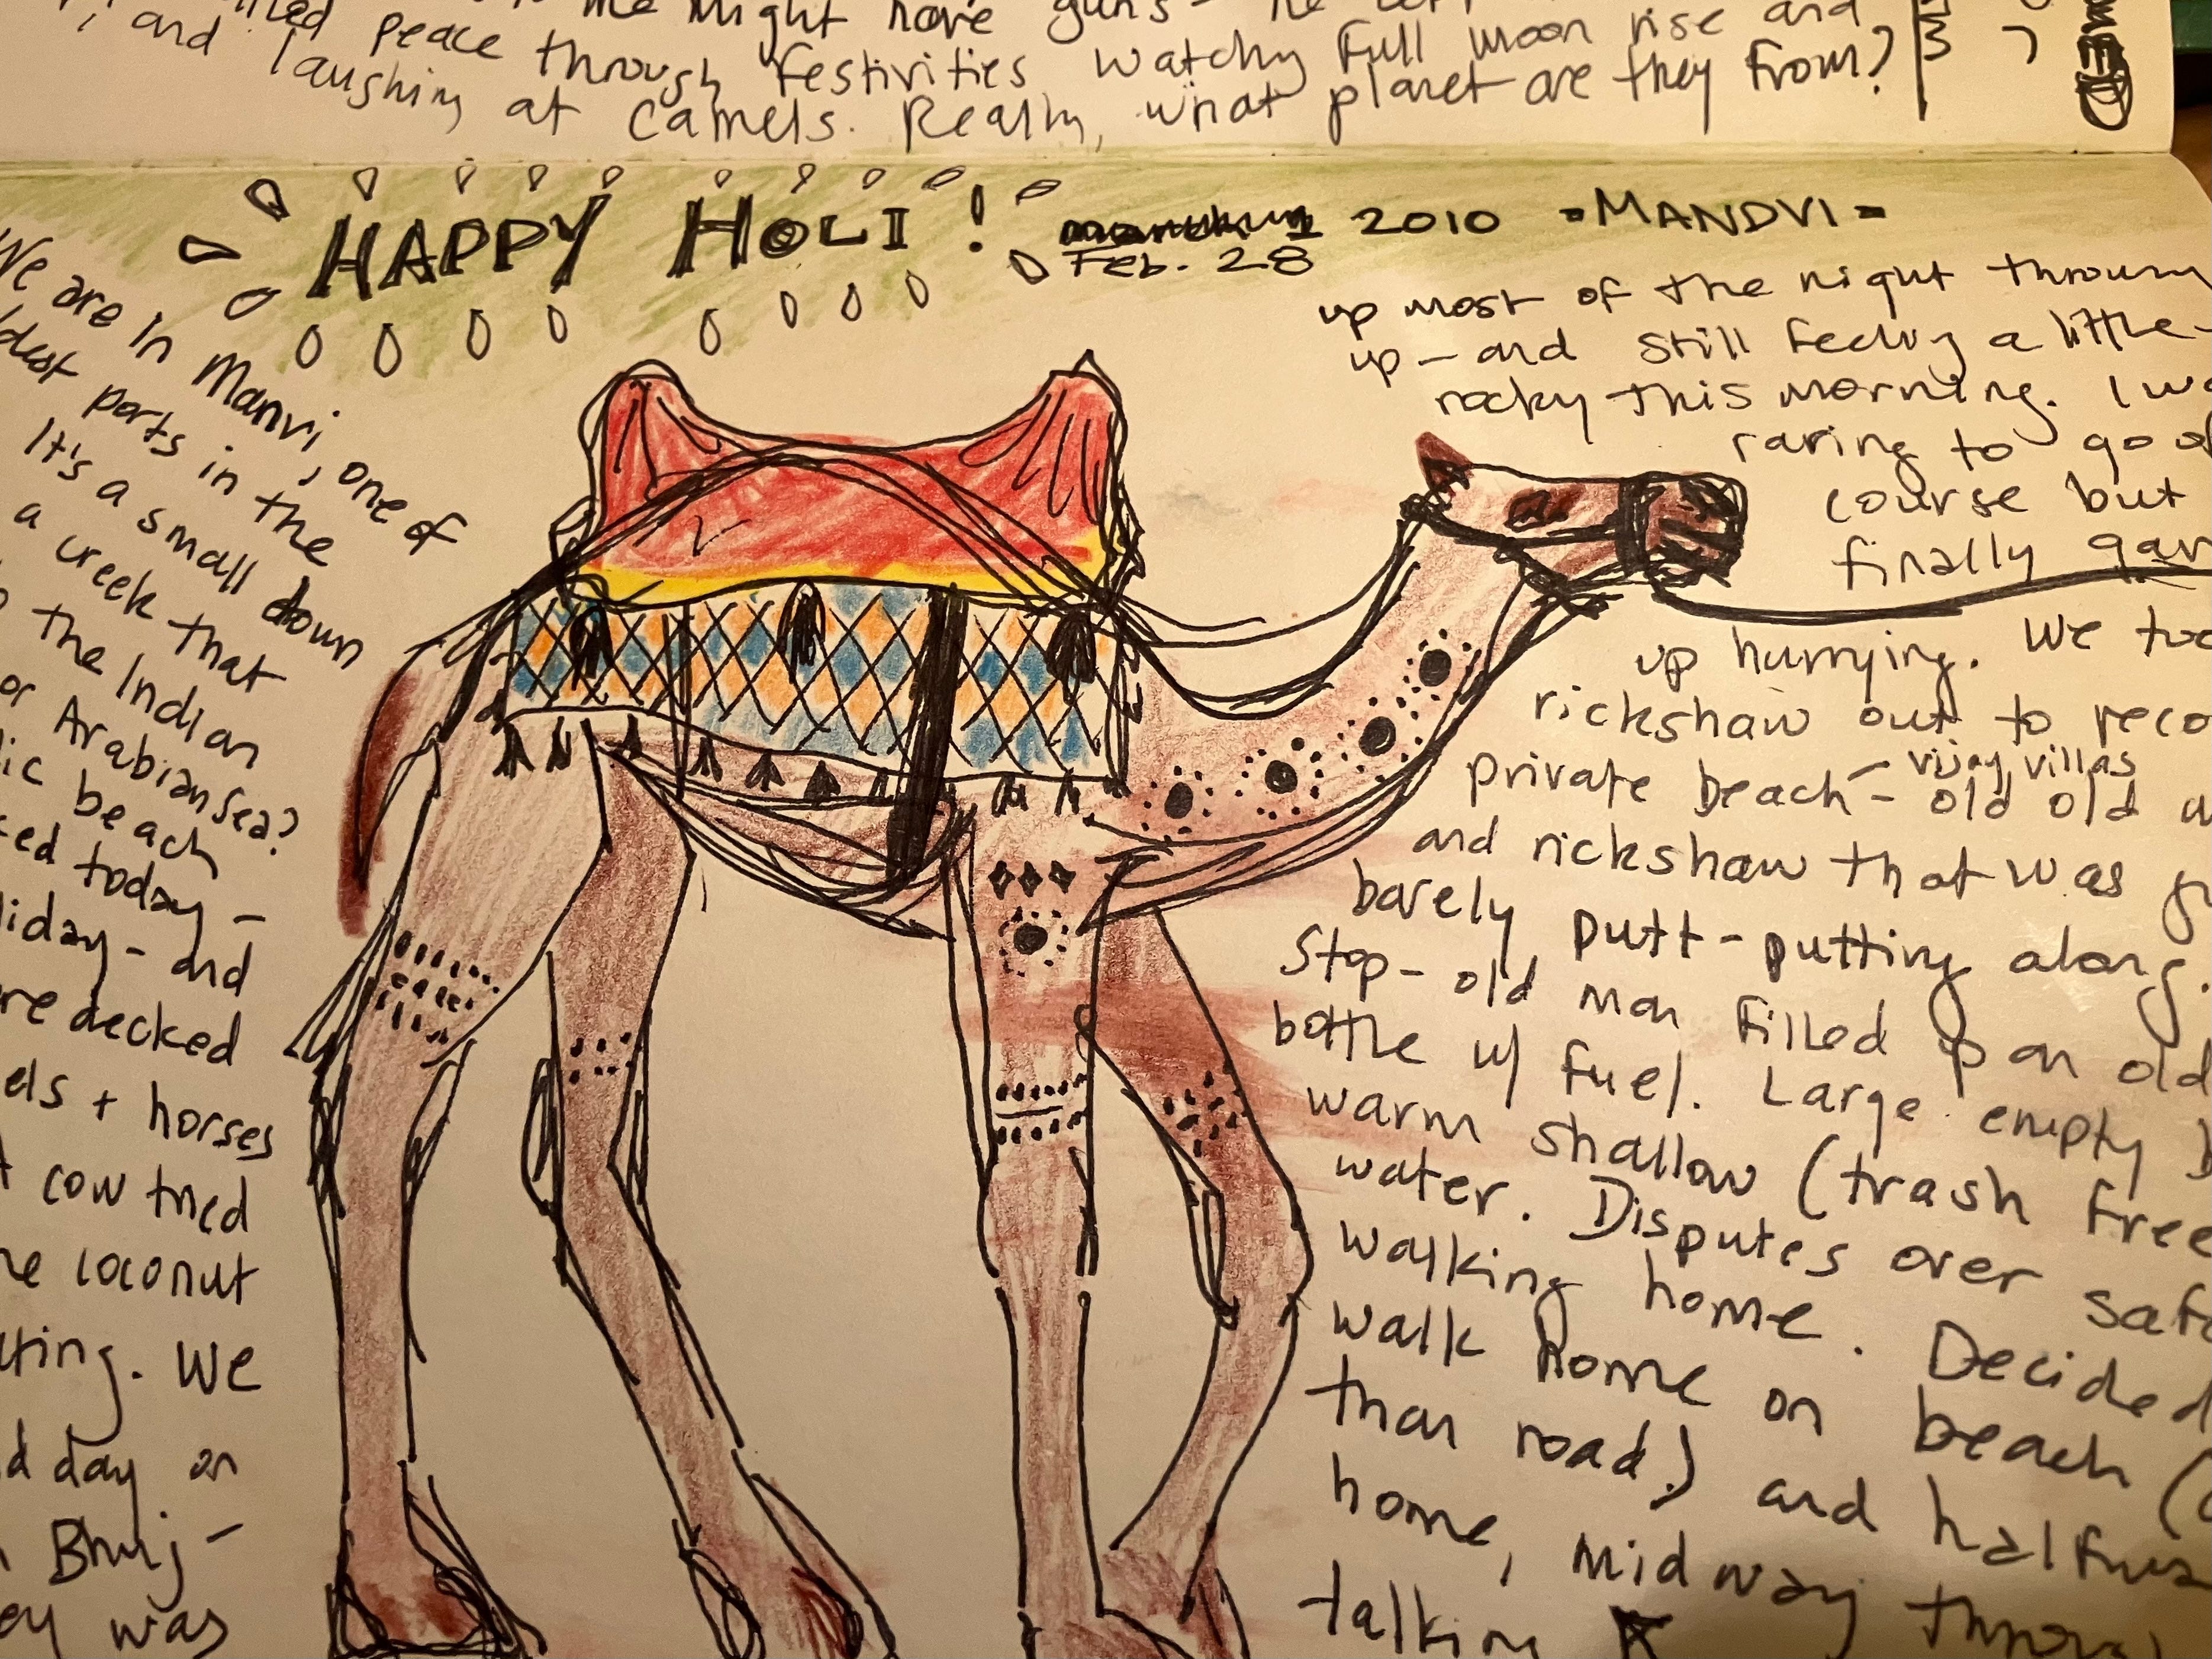 me might have guns - he
peace through festivities watchy full moon rise and
and laughing at camels. Really, what planet are they from?
HAPPY HOLI! 2010 -MANDVI-
Feb. 28
We are in Manvi, one of
ports in the
It's a small down
a creek that
the Indian
or Arabian Sea?
beach
today -
and
decked
+ horses
cow tried
coconut
We
day on
Bhuj -
was
up most of the night throwing
up - and still feeling a little
rocky this morning. I
raring to go of
course but
finally
up hurrying. We
rickshaw out to
private beach - vijay villas
old old
and rickshaw that was
barely putt-putting along.
Stop - old man filled up an old
bottle w/ fuel. Large empty
warm shallow (trash free
water. Disputes over
walking home. Decided
walk home on beach
than road.) and
home, midway
talking